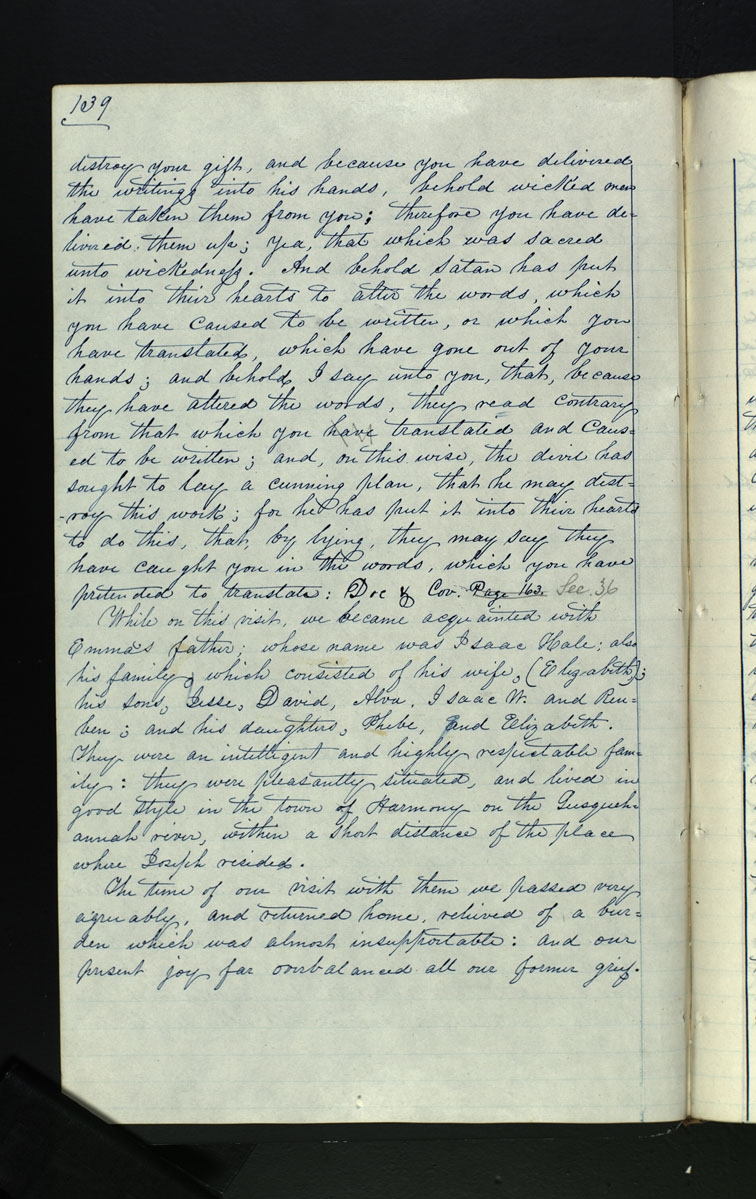 139
distroy your gift, and because you have delivered
the writings into his hands, behold wicked men
have taken them from you; therefore you have de=
livered them up; yea, that which was sacred
unto wickedness. And behold Satan has put
it into their hearts to alter the words, which
you have caused to be written, or which you
have translated, which have gone out of your
hands; and behold, I say unto you, that, because
they have altered the words, they read contrary
from that which you have translated and caus=
ed to be written; and, on this wise, the devil has
sought to lay a cunning plan, that he may dest=
-roy this work; for he has put it into their hearts
to do this, that, by lying, they may say they
have caught you in the words, which you have
pretended to translate: Doc & Cov. Page 163. Sec. 36
While on this visit, we became acquainted with
Emma's father; whose name was Isaac Hale; also
his family, which consisted of his wife, (Elizabeth);
his sons, Jesse, David, Alva, Isaac W. and Reu=
ben; and his daughters, Phebe, and Elizabeth.
They were an intelligent and highly respectable fam=
ily: they were pleasantly situated, and lived in
good style in the town of Harmony on the Susqueh=
annah river, within a short distance of the place
where Joseph resided.
The time of our visit with them we passed very
agreeably, and returned home, relieved of a bur=
den which was almost insupportable: and our
present joy far overbalanced all our former grief.